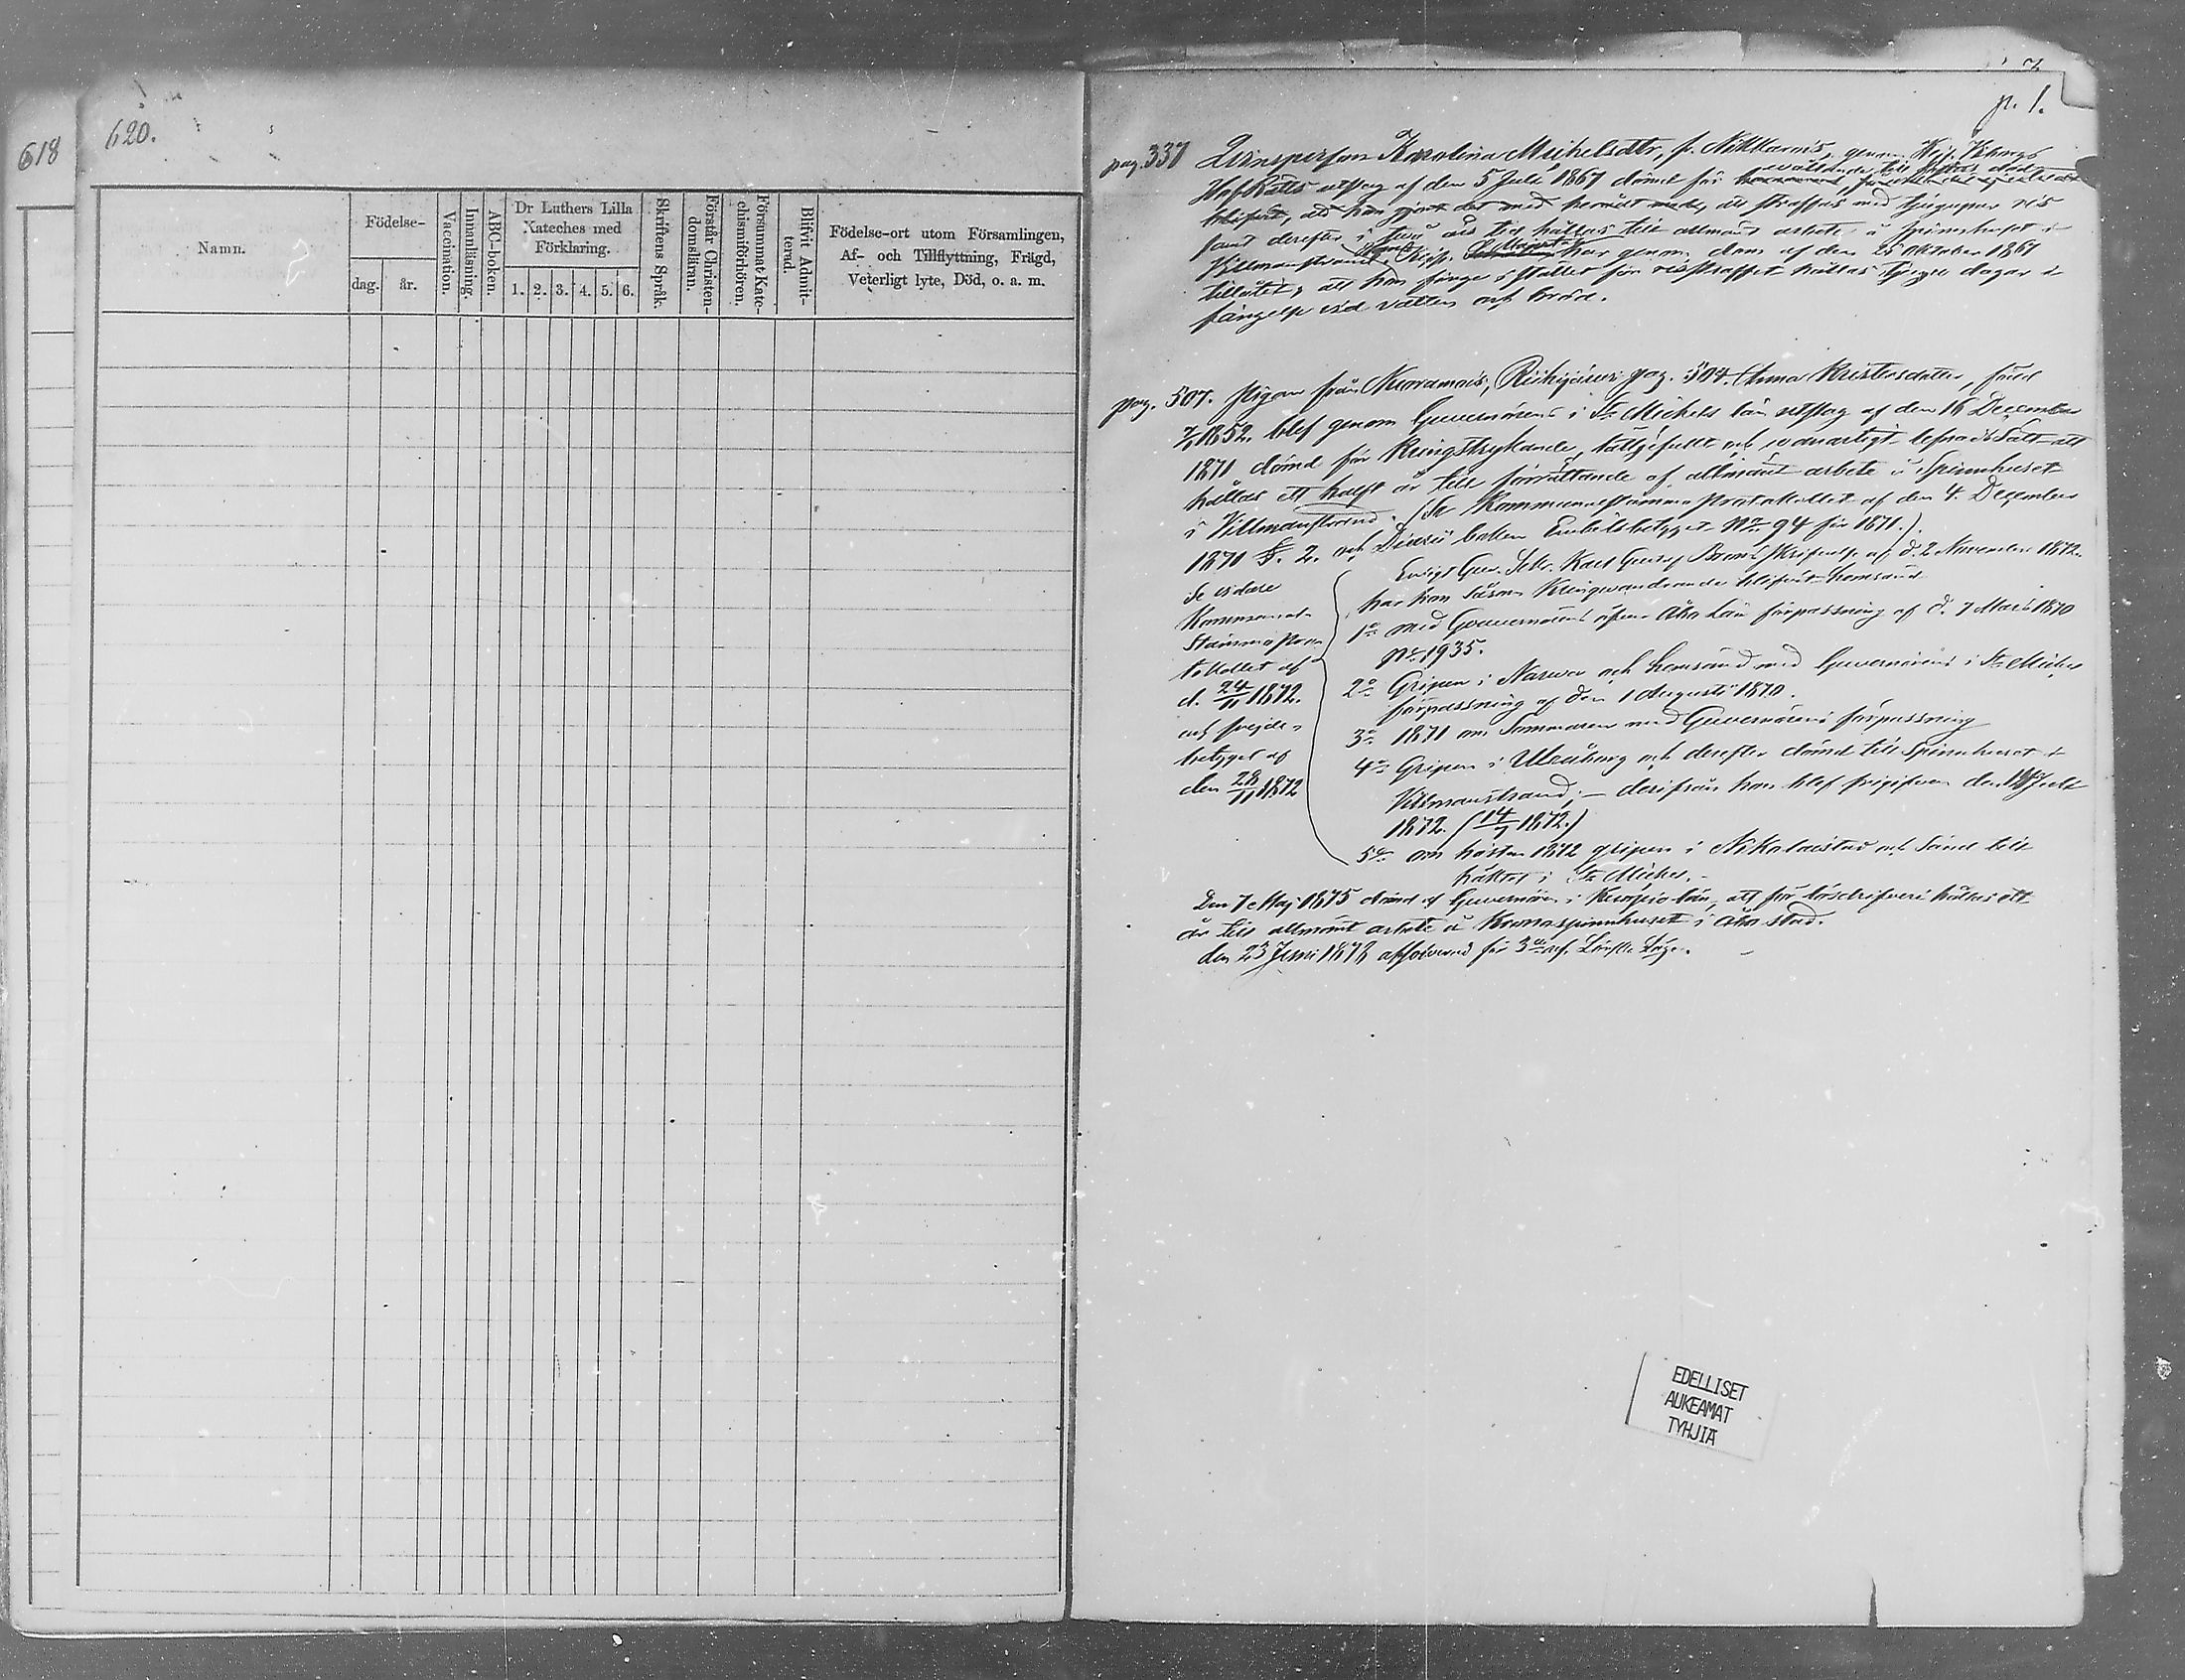 618
620.
Namn.
Födelse-
dag.
år.
Vaccination.
Innanläsning.
ABC-boken.
Dr Luthers Lilla
Kateches med
Förklaring.
1. 2. 3. 4. 5. 6.
Skriftens Språk.
Förstår Christen-
domsläran.
Försummat Kate-
chismiförhören.
Blifvit Admit-
terad.
Födelse-ort utom Församlingen,
Af- och Tillflyttning, Frägd,
Veterligt lyte, Död, o. a. m.
p. 1.
pag. 337 Qvinspersen Karolina Michelsdtr, fr. Nikkarais, genom Kejs. Viborgs
HofRätts utslag af den 5 Juli 1867 dömd för
att hon att straffas med tjugupar ris
samt derefter i två års tid hållas till allmänt arbete å spinnhuset i
Villmanstrand. Kejs. har genom dom af den 25 Oktober 1867
tillåtit, att hon finge i stället för risstraffet hållas tjugu dagar i
fängelse vid vatten och bröd.
pag. 507. Pigan från Nuoramois, Riihijärvi pag. 504. Anna Kristersdotter, född
1852. blef genom Guvernörens i St. Michels län utslag af den 16 December
1871 dömd för kringstrykande, lättjefullt och vanartigt lefnadssätt att
hållas ett halft år till förrättande af allmänt arbete å Spinnhuset
i Villmanstrand. (Se Kommunalstämma protokollet af den 4. December
1871 §. 2. och Diarii boken Embetsbetyget No 94 för 1871.).
Se vidare
Kommunal-
Stämmopro-
tokollet af
d. 24/11 1872.
och frejde-
betyget af
den 28/11 1872
Enligt Guv. Sekr. Karl Gustaf skrifvelse af d. 2 November 1872.
har hon såsom Kringvandrande blifvit hemsänd
1o med Gouvernörens öfver Åbo Län förpassning af d. 7 Mars 1870
No 1935.
2o Gripen i Narwa och hemsänd med Guvernörens i St. Michels
förpassning af den 1 Augusti 1870.
3o 1871 om Sommaren med Guvernörens förpassning
4o Gripen i Uleåborg och derefter dömd till Spinnhuset i
Villmanstrand; — derifrån hon blef frigifven den 14 Juli
1872. (14/7 1872.)
5o om hösten 1872 gripen i Nikolaistad och sänd till
häktet i St. Michel.
Den 7 Maj 1875 dömd af Guvernören i Kuopio län, att för lösdrifveri hållas ett
år till allmänt arbete å Kronospinnhuset i Åbo stad.
den 23 Juni 1878 absolverad för 3
EDELLISET
AUKEAMAT
TYHJIÄ